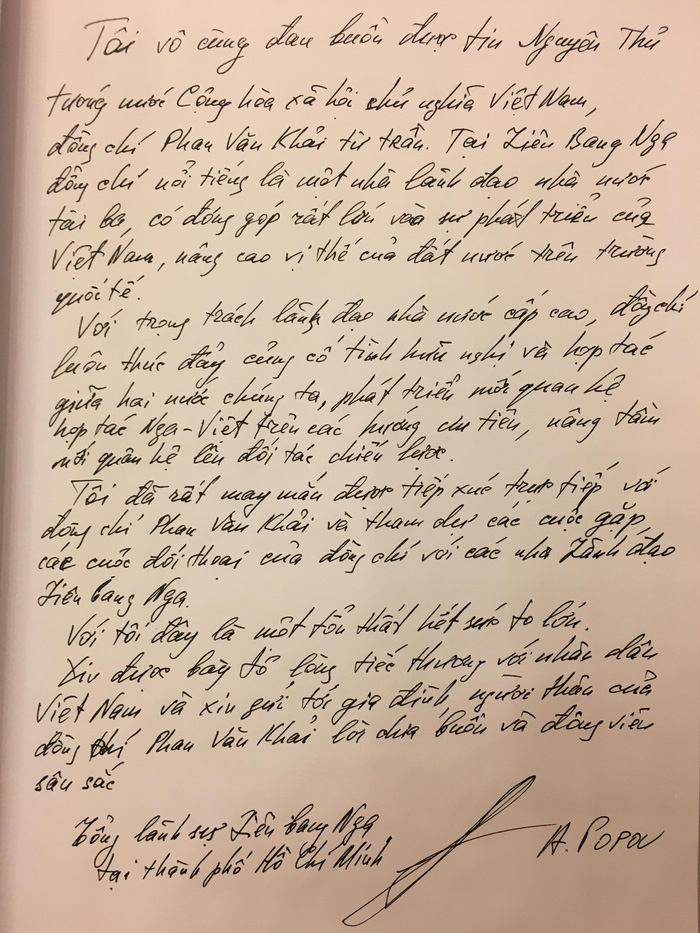 Tôi vô cùng đau buồn được tin Nguyên Thủ
tướng nước Cộng hòa xã hội chủ nghĩa Việt Nam,
đồng chí Phan Văn Khải từ trần. Tại Liên Bang Nga
đồng chí nổi tiếng là một nhà lãnh đạo nhà nước
tài ba, có đóng góp rất lớn vào sự phát triển của
Việt Nam, nâng cao vị thế của đất nước trên trường
quốc tế.
Với trọng trách lãnh đạo nhà nước cấp cao, đồng chí
luôn thúc đẩy củng cố tình hữu nghị và hợp tác
giữa hai nước chúng ta, phát triển mối quan hệ
hợp tác Nga-Việt trên các hướng ưu tiên, nâng tầm
mối quan hệ lên đối tác chiến lược.
Tôi đã rất may mắn được tiếp xúc trực tiếp với
đồng chí Phan Văn Khải và tham dự các cuộc gặp,
các cuộc đối thoại của đồng chí với các nhà Lãnh đạo
Liên bang Nga.
Với tôi đây là một tổn thất hết sức to lớn.
Xin được bày tỏ lòng tiếc thương với nhân dân
Việt Nam và xin gửi tới gia đình, người thân của
đồng chí Phan Văn Khải lời chia buồn và động viên
sâu sắc
Tổng lãnh sự Liên bang Nga
tại thành phố Hồ Chí Minh
A. Popov